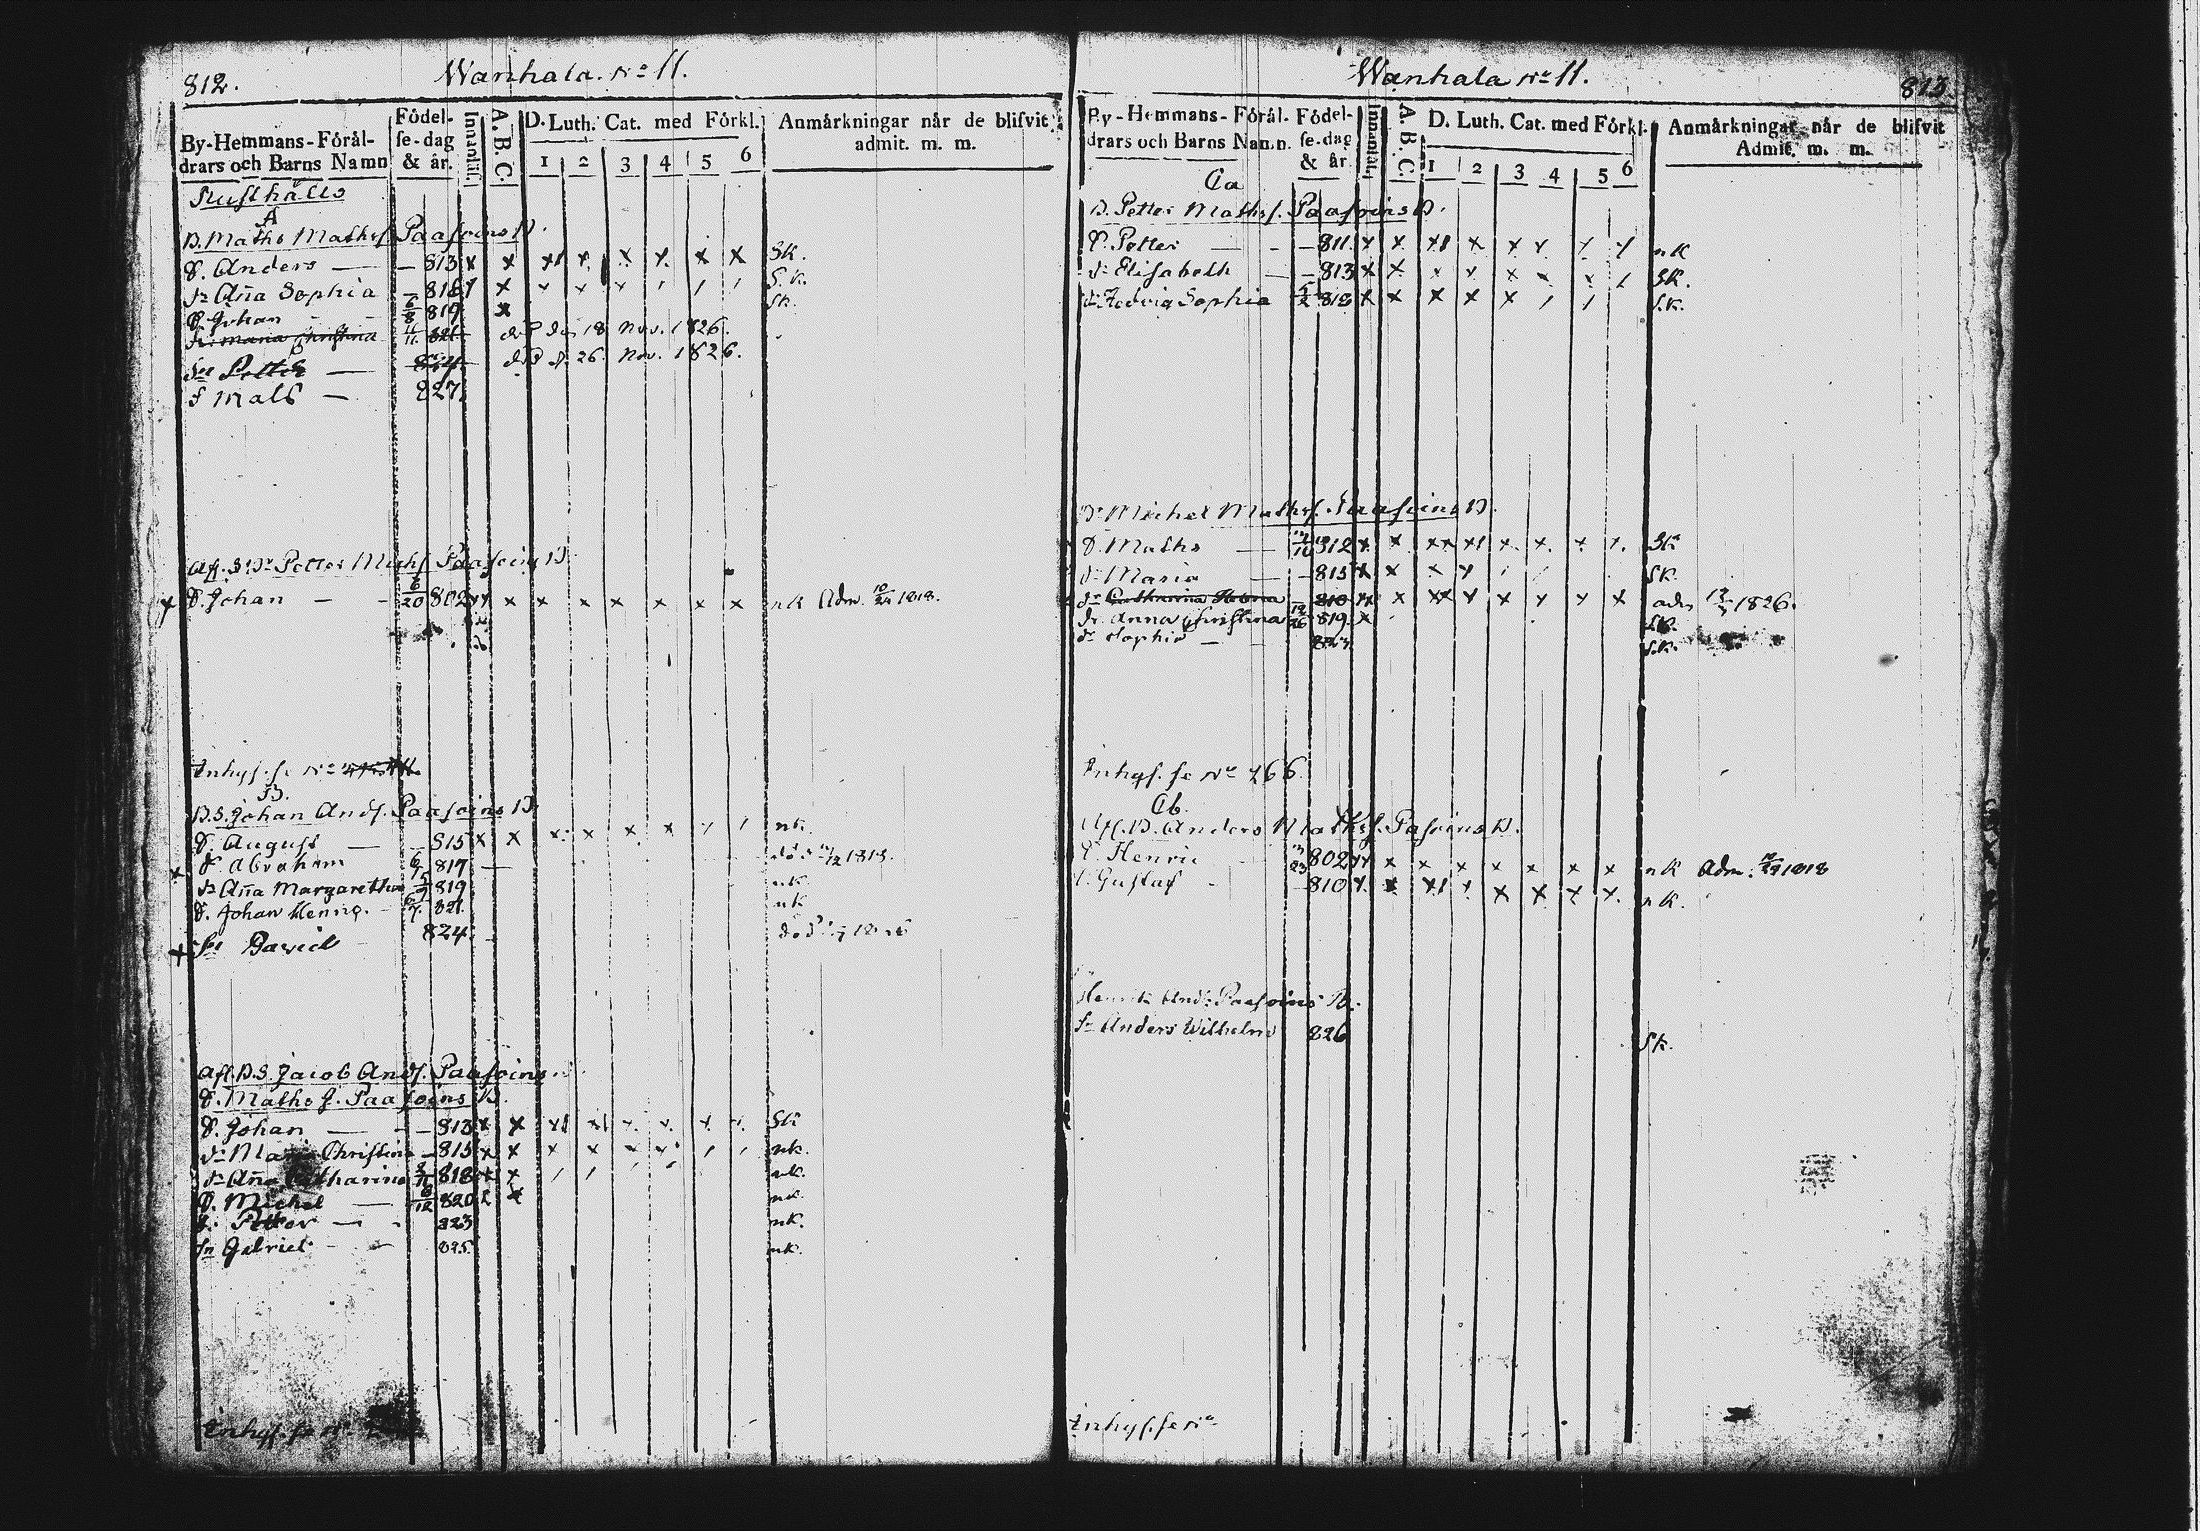 812.
Wanhala. No 11.
By-Hemmans-Förål-
drars och Barns Namn
Födel-
se-dag
& år.
Innanläs.
A. B. C.
D. Luth. Cat. med Förkl.
1 2 3 4 5 6
Anmärkningar när de blifvit
admit. m. m.
Rusthålls
A
B. Maths Mathsf Paasoins B.
S. Anders — 813 x x x x x x x Sk.
Dr Aña Sophia — 816 S.k.
S. Johan 6/8 819 x Sk.
Dr: Maria Christina 821 död den 18 Nov. 1826.
Petter — 824 död d. 26. Nov. 1826.
S Mats — 827.
Petter Paasoins B
S. Johan — 6/20 802 x x x x x x x nk Adm. 1818.
Inhys. se No
B.
B.S. Johan Andf. Paasoins B
S. August — 815 x x x x x x nk.
S. Abraham 6/7 817 — 1818.
Dr Aña Margaretha 819 nk
S. Johan Henric. 821. nk
Sn David 824. död
Afl. B.S. Jacob Andf. Paasoins
S. Maths J. Paasoins B.
S. Johan — 813 x x Sk
Dr Maria Christina — 815 x x x x x x nk.
Dr Aña Catharina 818 x x nk.
S. Michel — 820 nk
S. Petter — 823 nk.
Sn Gabriel 825. nk.
Inhys. se No
Wanhala No 11.
813.
By-Hemmans-Förål-
drars och Barns Namn.
Födel-
se-dag
& år
Innanläs.
A. B. C.
D. Luth. Cat. med Förkl.
1 2 3 4 5 6
Anmärkningar när de blifvit
Admit. m. m.
Ca
B. Petter Mathsf. Paasoins B.
S. Petter — 811. nk
Dr Elisabeth — 813 x x Sk.
Dr Hedvig Sophia 818 x x x x x S.k.
Br Michel Mathsf. Paasoins B.
S. Maths — 812 Sk
Dr Maria — 815 x x x Sk.
Dr Catharina Helena — 810 adm 1826.
Dr. Anna Christina 819. x Sk.
Dr Sophia — 823. S.k.
Inhys. se No 266.
Cb.
Afl. B. Anders Mathsf. Pasoins B.
S. Henric 802 x x x x x x x nk Adm. 1818
S. Gustaf 810 nk.
Henrik Andf: Paasoins B.
Sn Anders Wilhelm 826 Sk.
Inhys. se No